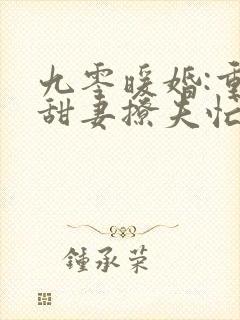 九零暖婚:重
甜妻撩夫忙
鍾承荣